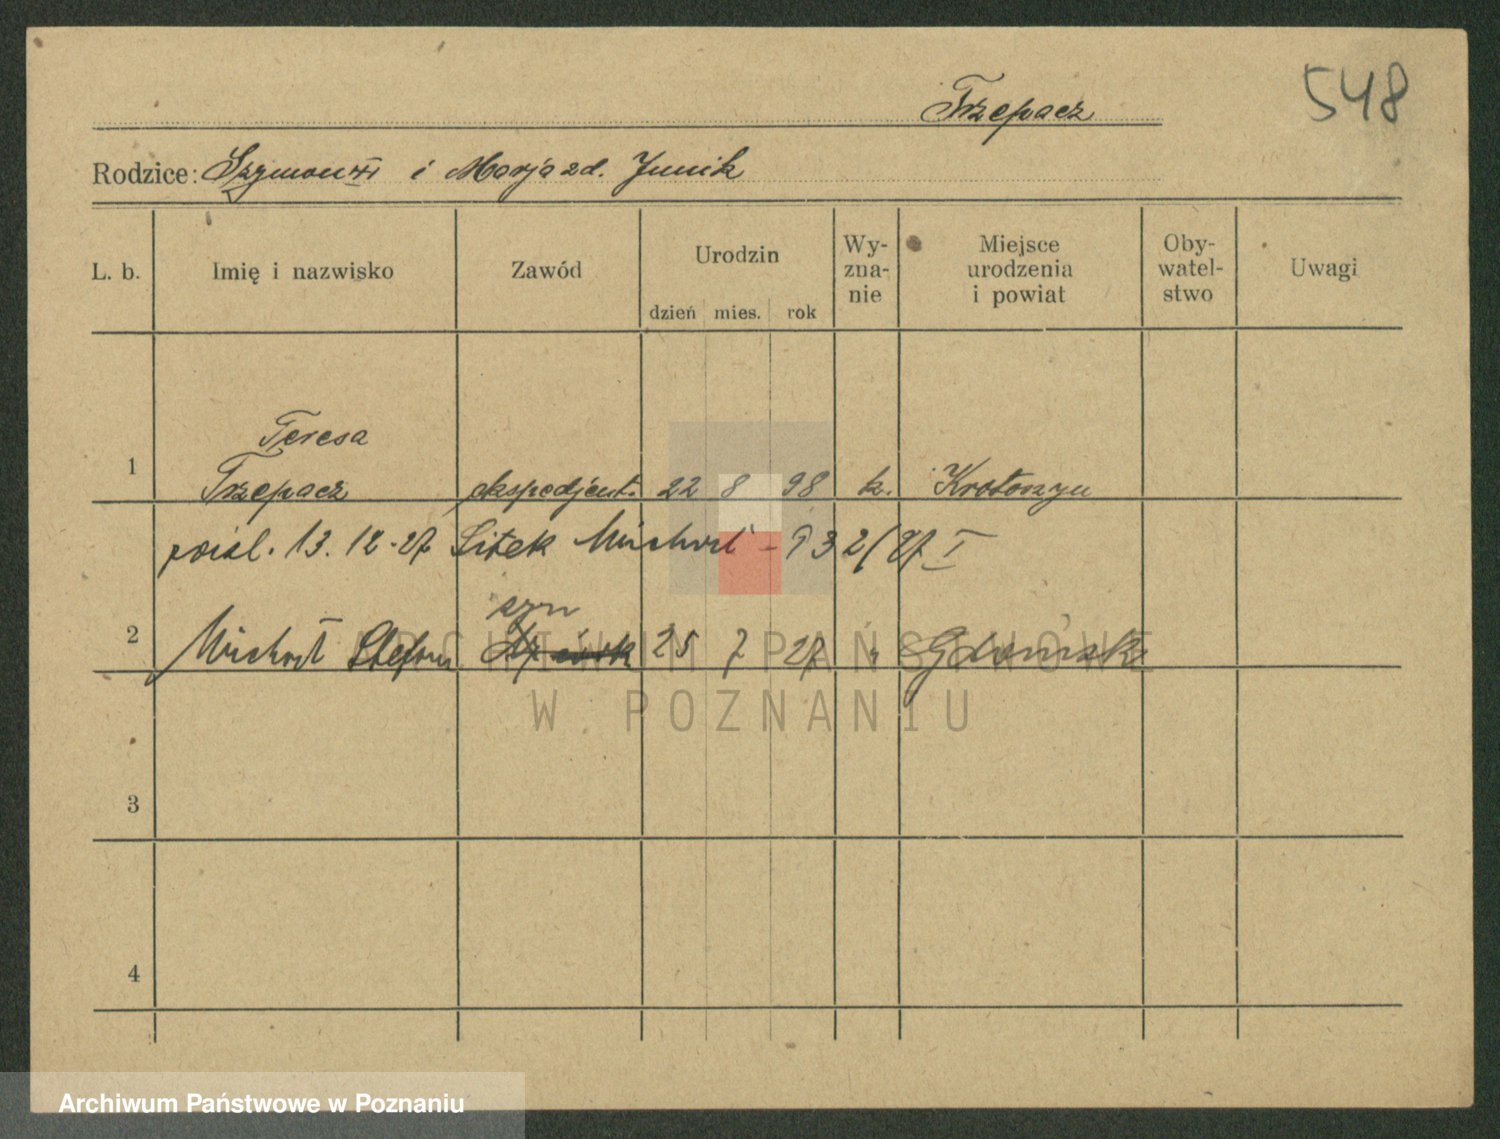 548
Trzepacz
Rodzice: Szymon i Marja zd. Junik
L. b. Imię i nazwisko Zawód Urodzin dzień mies. rok Wy-zna-nie Miejsce urodzenia i powiat Oby-watel-stwo Uwagi
Teresa
1 Trzepacz ekspedjent. 22 8 98 k. Krotoszyn
13.12.27 Sitek Michał - 32/27 I
syn
2 Michał Stefan 25 7 27 " Gdańsk
ARCHIWUM PAŃSTWOWE
W POZNANIU
3
4
Archiwum Państwowe w Poznaniu